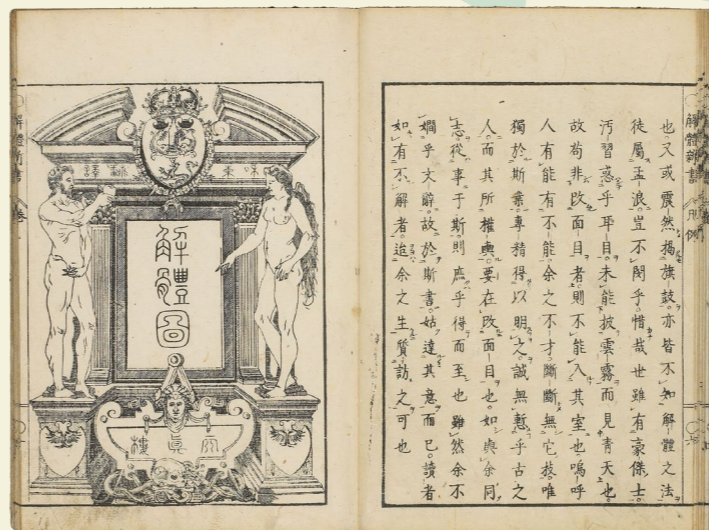 解體新書 凡例
也又或震然揭旗鼓。亦皆不知解體之法
徒屬孟浪。豈不閔乎。惜哉世雖有豪傑士。
汚習惑乎耳目。未能披雲霧而見青天也。
故苟非改面目者。則不能入其室也。嗚呼
人有能有不能。余之不才。斷斷無它技。唯
獨於斯業。專精得以明之。誠無慙乎古之
人。而其所權輿。要在改面目也。如與余同
志從事于斯。則庶乎得而至也。雖然余不
嫺乎文辭。故於斯書。姑達其意而已。讀者
如有不解者。迨余之生質訪之可也
解體圖
天眞樓
解體新書 卷